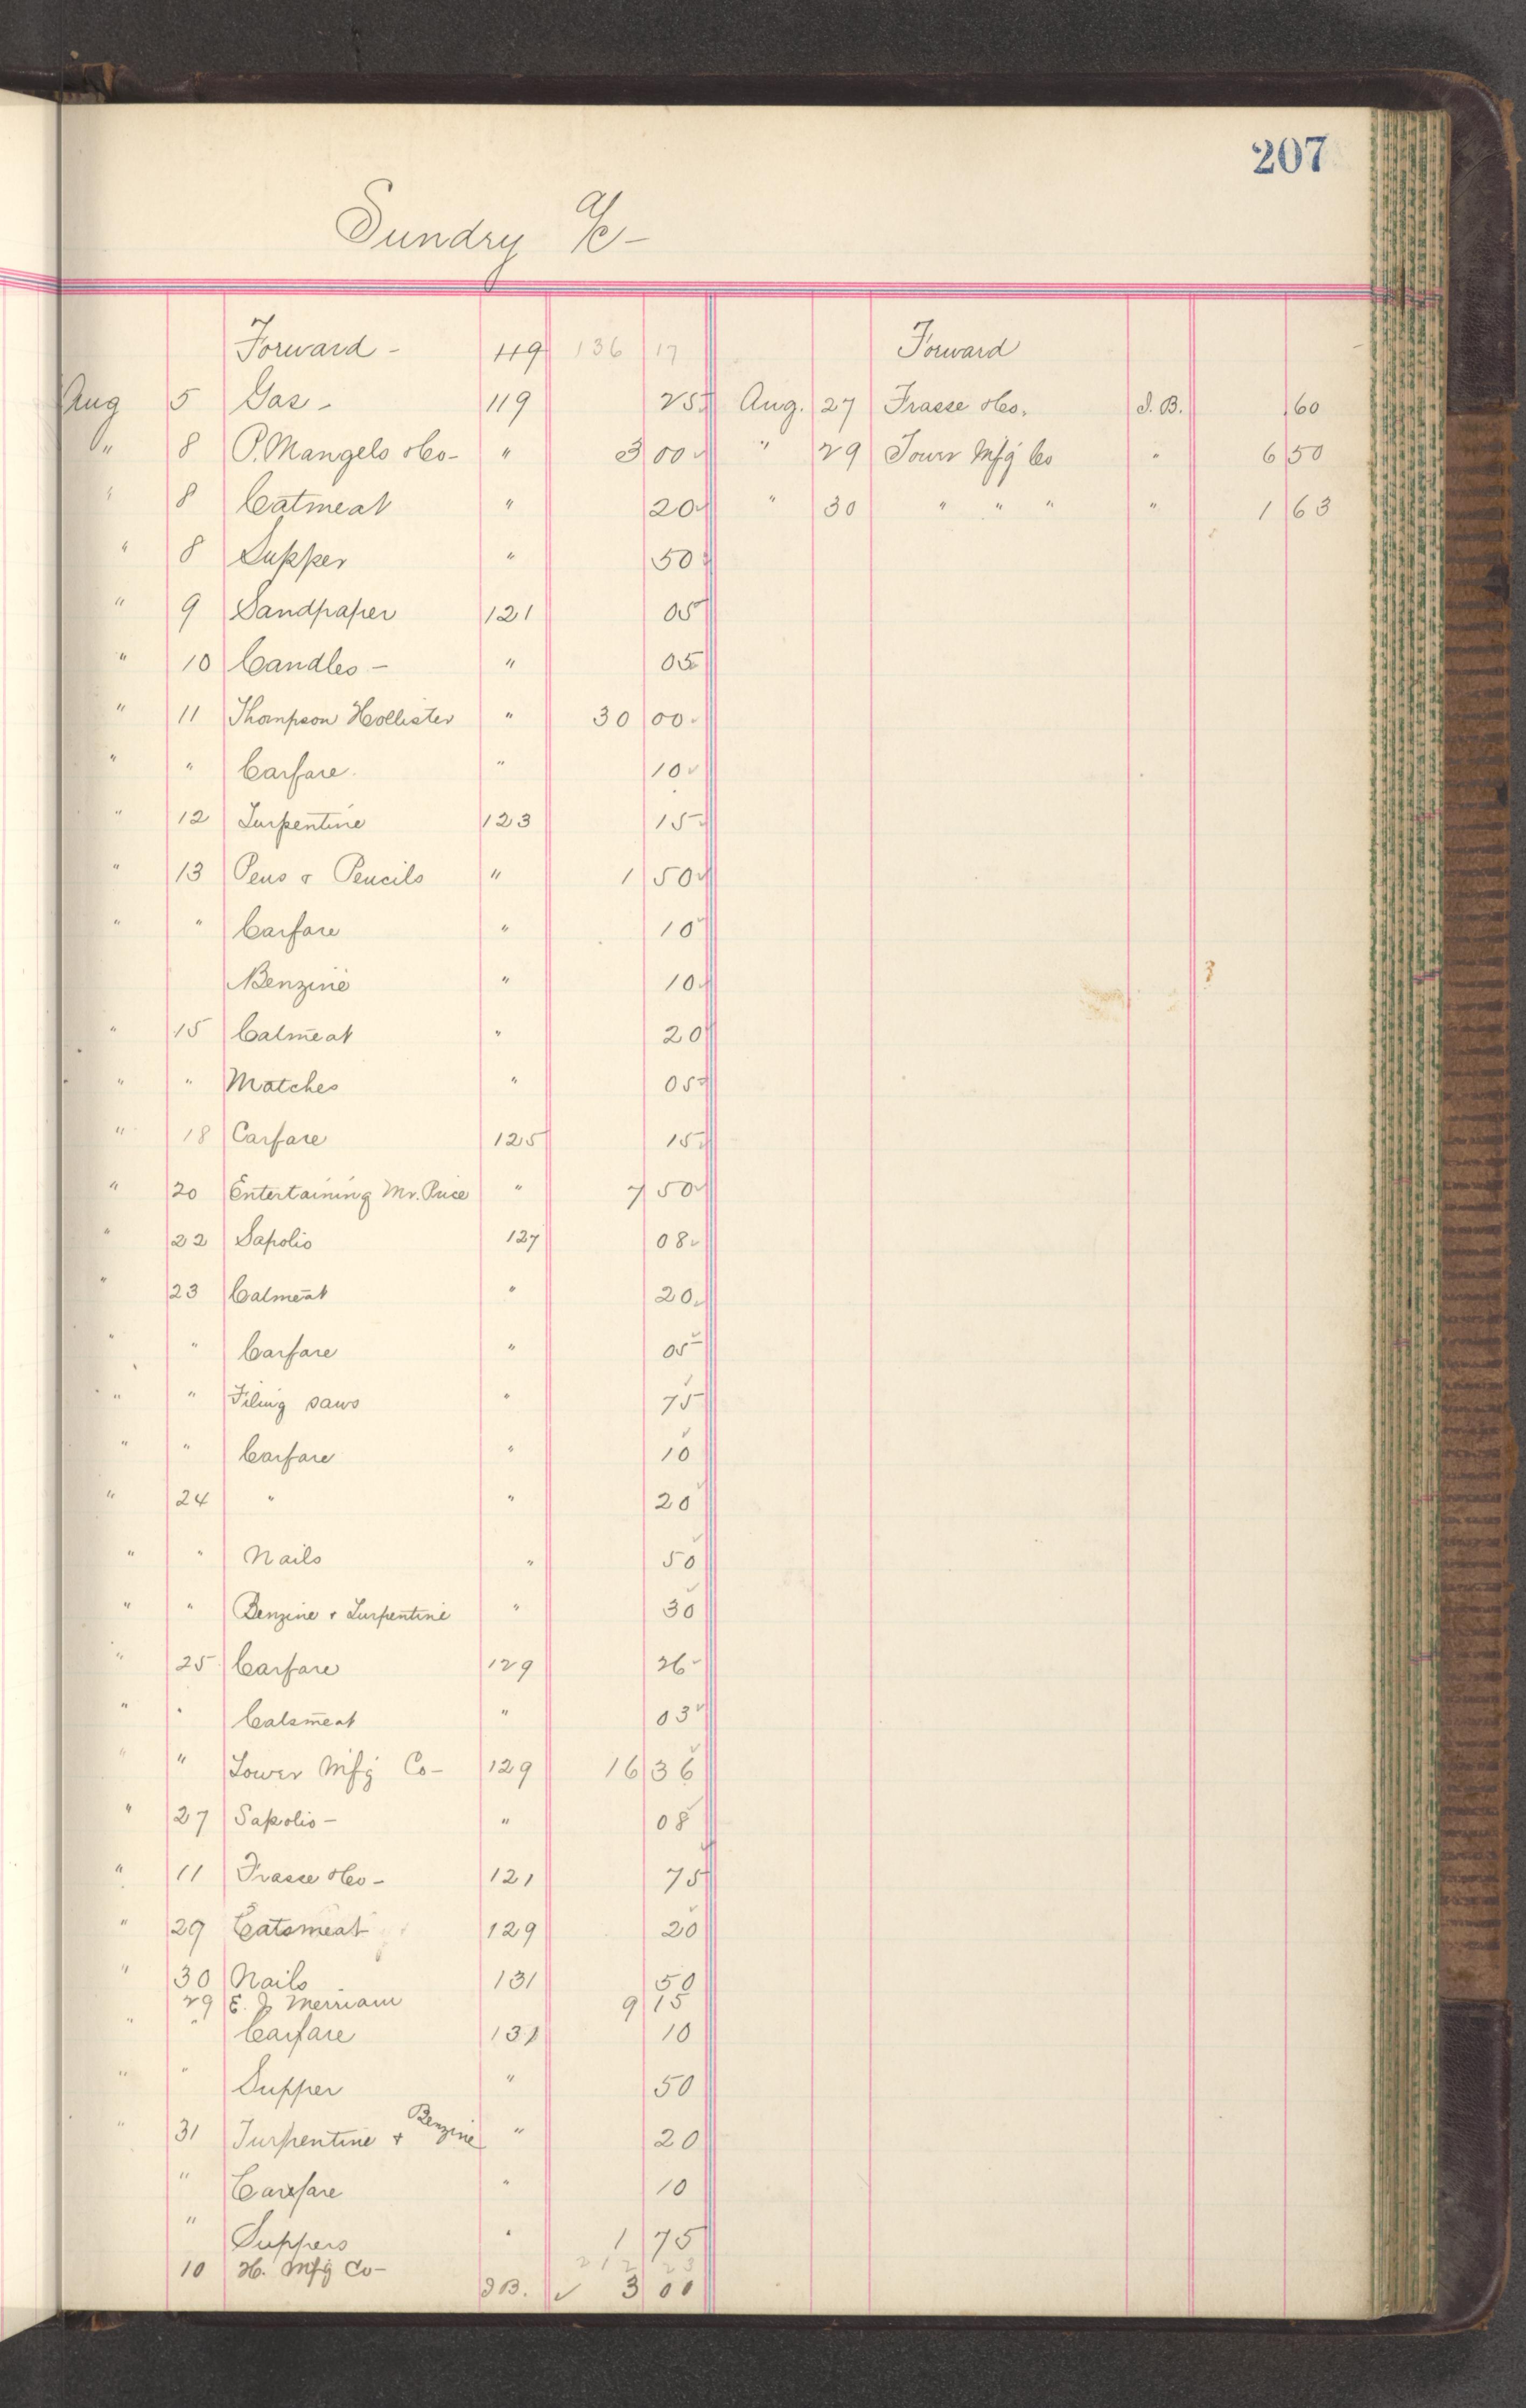 207
Sundry a/c –
Forward – 119 136 17 Forward
Aug 5 Gas – 119 25 Aug. 27 Frasse & Co. J.B. .60
" 8 P. Mangels & Co – " 3 00 " 29 Tower Mfg Co " 6 50
" 8 Catmeat " 20 " 30 " " " " 1 63
" 8 Supper " 50
" 9 Sandpaper 121 05
" 10 Candles – " 05
" 11 Thompson Hollister " 30 00
" " Carfare. " 10
" 12 Turpentine 123 15
" 13 Pens & Pencils " 1 50
" " Carfare " 10
Benzine " 10
" 15 Catmeat " 20
" " Matches " 05
" 18 Carfare 125 15
" 20 Entertaining Mr. Price " 7 50
" 22 Sapolio 127 08
" 23 Catmeat " 20
" " Carfare " 05
" " Filing saws " 75
" " Carfare " 10
" 24 " " 20
" " Nails " 50
" " Benzine & Turpentine " 30
" 25 Carfare 129 26
" " Catsmeat " 03
" " Tower Mfg Co – 129 16 36
" 27 Sapolio – " 08
" 11 Frasse & Co – 121 75
" 29 Catsmeat 129 20
" 30 Nails 131 50
29 E. J. Merriam 9 15
" " Carfare 131 10
" " Supper " 50
" 31 Turpentine & Benzine " 20
" Carefare " 10
" Suppers " 1 75
212 23
10 H. Mfg Co – J.B. ✓ 3 00